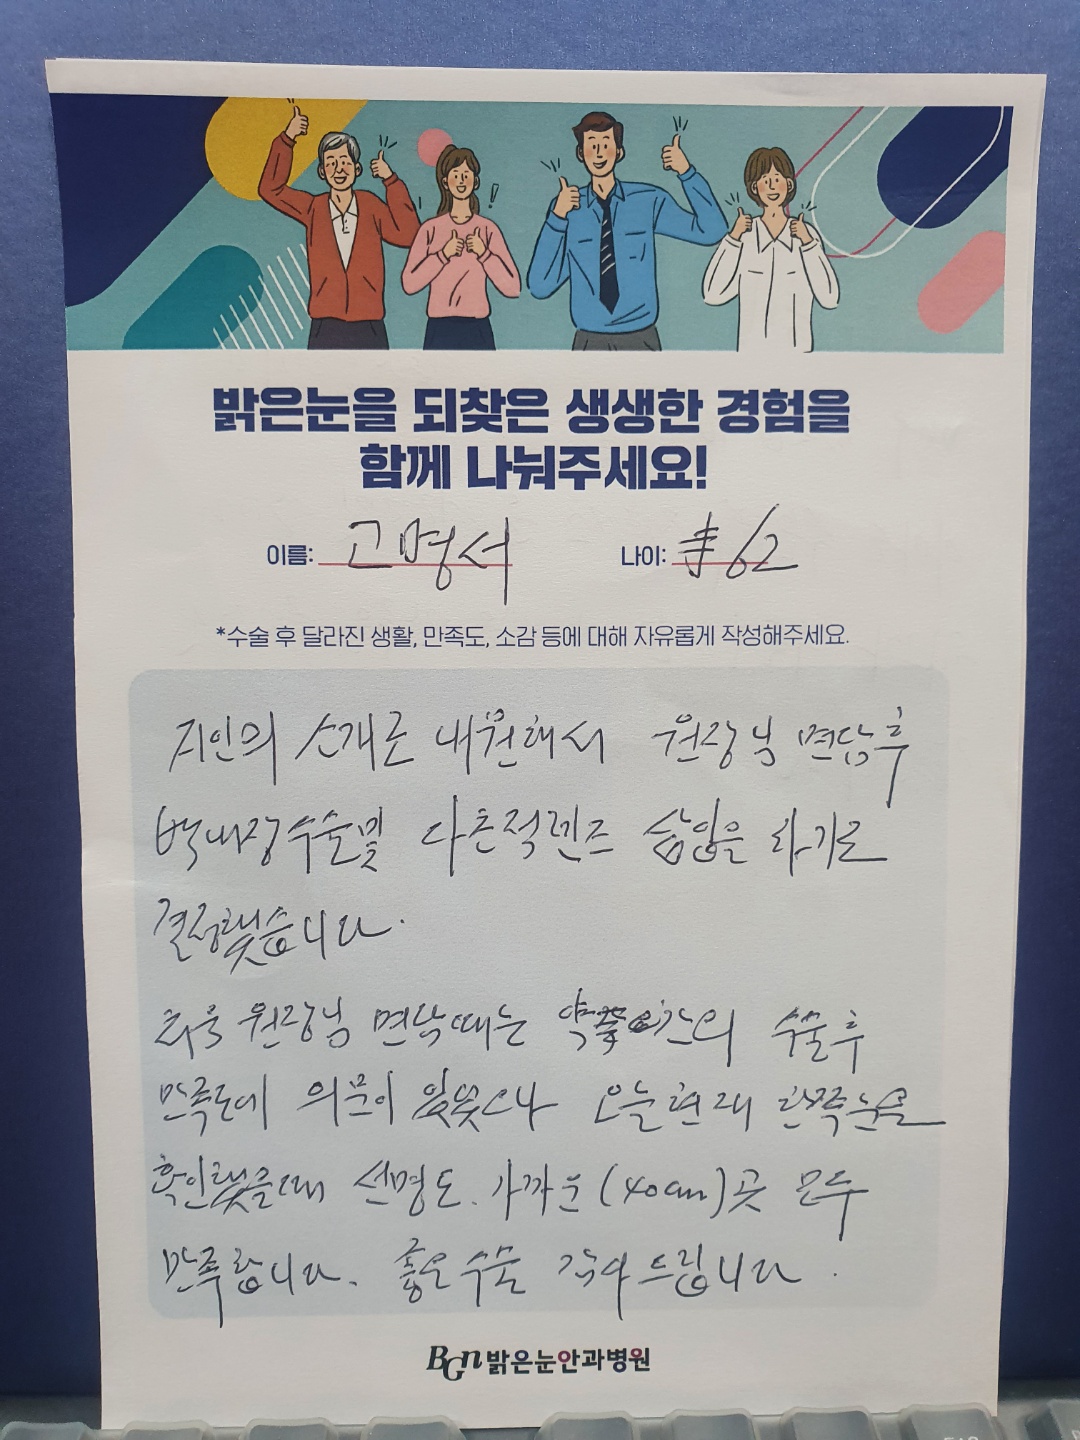 밝은눈을 되찾은 생생한 경험을
함께 나눠주세요!
이름: 고명서 나이: 62
*수술 후 달라진 생활, 만족도, 소감 등에 대해 자유롭게 작성해주세요.
지인의 소개로 내원해서 원장님 면담후
백내장수술및 다촌적렌즈 삽입을 하기로
결정했습니다.
처음 원장님 면담때는 약간의 수술후
만족도에 의문이 있었으나 오늘현재 한쪽눈을
확인했을때 선명도. 가까운(40cm)곳 모두
만족합니다. 좋은수술 감사드립니다.
BGn밝은눈안과병원